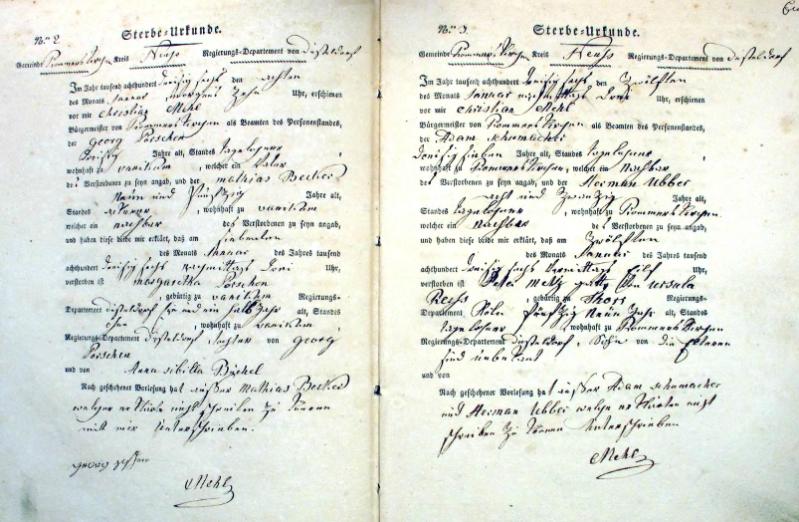 Nro 2
Sterbe-Urkunde.
Gemeinde Rommerskirchen Kreis Neuss Regierungs-Departement von Düsseldorf
Im Jahr tausend achthundert dreisig sechs den achten
des Monats Januar morgens zehn Uhr, erschienen
vor mir Christian Mehl
Bürgermeister von Rommerskirchen als Beamten des Personenstandes,
der Georg Porschen
dreisig Jahre alt, Standes Tagelohner
wohnhaft zu vanikum, welcher ein Vater
der Verstorbenen zu seyn angab, und der mathias Becker
Neun und Jahre alt,
Standes ackerer, wohnhaft zu vanikum
welcher ein nachbar des Verstorbenen zu seyn angab,
und haben diese beide mir erklärt, daß am siebenten
des Monats Januar des Jahres tausend
achthundert dreisig sechs nachmittags drei Uhr,
verstorben ist margaretha Porschen
, gebürtig zu vanikum Regierungs-
Departement Düsseldorf ein halb Jahr alt, Standes
ohne, wohnhaft zu vanikum
Regierungs-Departement Düsseldorf Tochter von Georg
Porschen
und von Anna sibilla Büchel
Nach geschehener Vorlesung hat außer Mathias Becker
welcher erklärte nicht schreiben zu können
mit mir Unterschrieben.
Mehl
Nro 3.
Sterbe-Urkunde.
Gemeinde Rommerskirchen Kreis Neuss Regierungs-Departement von Düsseldorf
Im Jahr tausend achthundert dreisig sechs den Zwölften
des Monats Januar nachmittags drei Uhr, erschienen
vor mir Christian Mehl
Bürgermeister von Rommerskirchen als Beamten des Personenstandes,
der Adam schumacher
dreisig sieben Jahre alt, Standes Tagelohner,
wohnhaft zu Rommerskirchen, welcher ein Nachbar
des Verstorbenen zu seyn angab, und der Herman Ubber
acht und Zwanzig Jahre alt,
Standes tagelohner, wohnhaft zu Rommerskirchen
welcher ein nachbar des Verstorbenen zu seyn angab,
und haben diese beide mir erklärt, daß am Zwölften
des Monats Januar des Jahres tausend
achthundert dreisig sechs vormittags eilf Uhr,
verstorben ist Peter metz gatte von ursula
, gebürtig zu Regierungs-
Departement Köln fünfzig neun Jahr alt, Standes
tagelohner, wohnhaft zu Rommerskirchen
Regierungs-Departement Düsseldorf, Sohn von die Elteren
sind unbekant
und von
Nach geschehener Vorlesung hat außer Adam schumacher
und Herman Ubber welche erklärten nicht
schreiben zu können Unterschrieben
Mehl